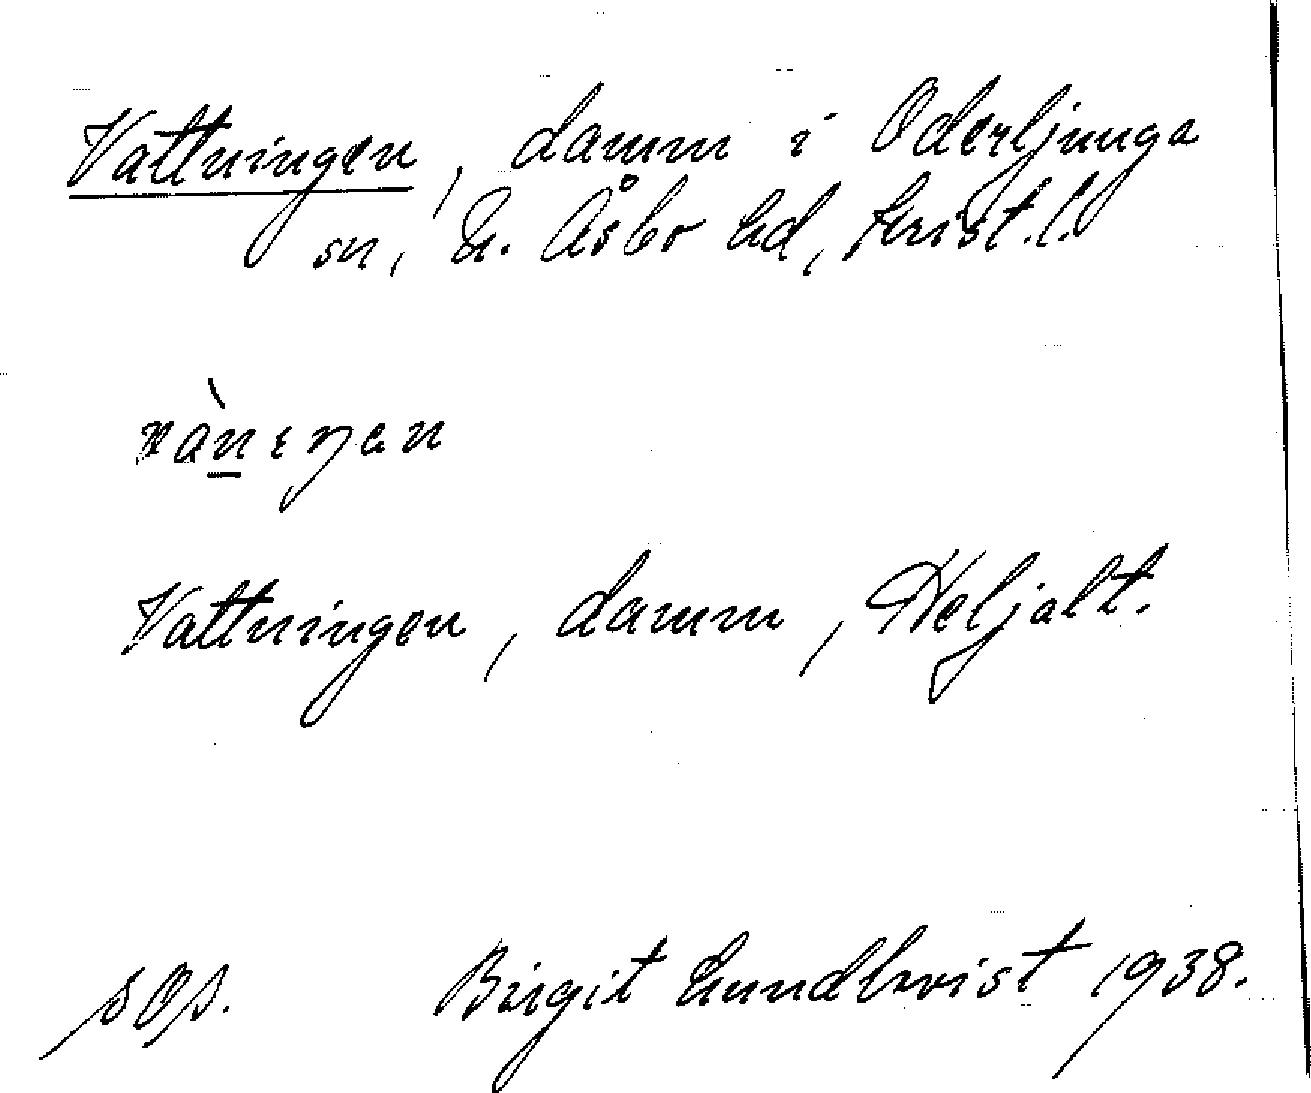 Vattningen, damm i Oderljunga
sn, N. Åsbo hd, Krist. l.
Vattningen, damm, Heljalt.
Birgit Lundkvist 1938.